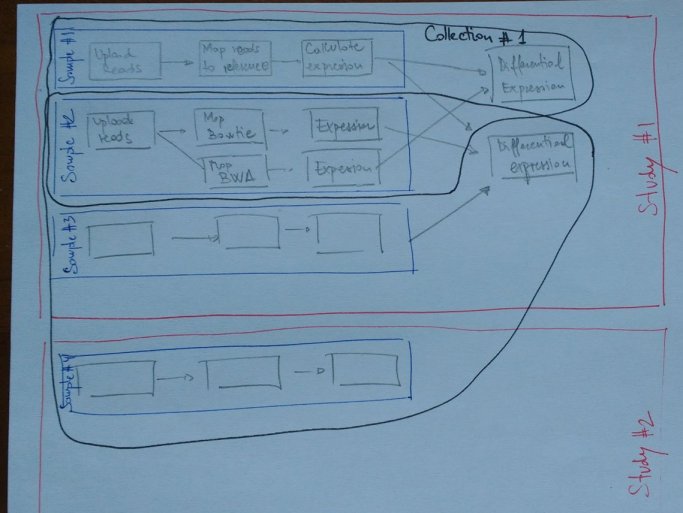 Collection # 1
Sample #1
Upload
reads
Map reads
to reference
Calculate
expression
Differential
Expression
Sample #2
Upload
reads
Map
Bowtie
Expession
Map
BWA
Expession
Differentional
expression
Sample #3
Study #1
Sample #4
Study #2